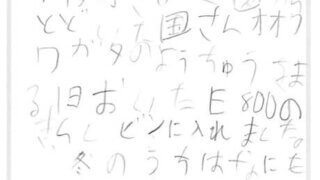 とどいた国さんオオク
ワガタのようちゅうはま
る1日おいたE800の
きんしビンに入れました
冬のうちはなにも